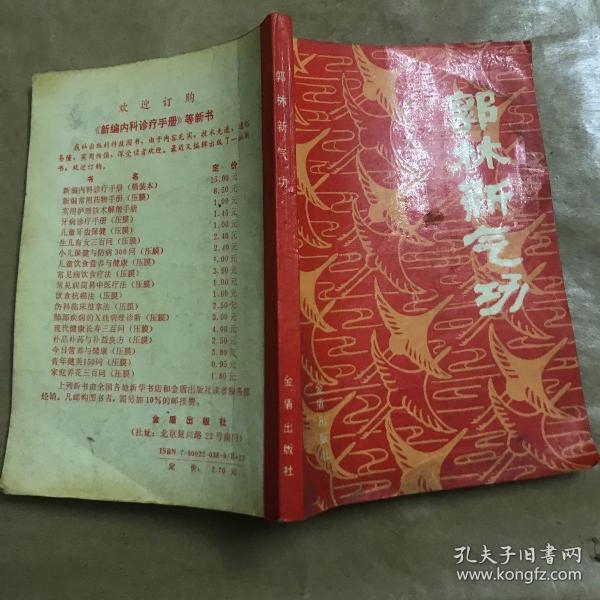 欢迎订购
《新编内科诊疗手册》等新书
我社出版的科技图书，由于内容充实，技术先进，通俗
易懂，实用性强，深受读者欢迎。最近又编辑出版了一批新
书，欢迎订购。
书 名 定 价
新编内科诊疗手册（精装本） 15.00元
新编常用药物手册（压膜） 8.50元
实用护理技术解剖手册
牙病诊疗手册（压膜） 1.45元
儿童牙齿保健（压膜） 1.00元
生儿育女三百问（压膜） 2.40元
小儿保健与防病300问（压膜） 2.40元
儿童饮食营养与健康（压膜） 1.00元
常见病饮食疗法（压膜） 3.90元
常见病简易中医疗法（压膜） 1.00元
饮食抗癌法（压膜） 1.60元
伤科临床推拿法（压膜） 2.50元
肺部疾病的X线病理诊断（压膜） 3.00元
现代健康长寿三百问（压膜） 4.00元
补品补药与补益良方（压膜） 2.50元
今日营养与健康（压膜） 3.80元
青年健美150问（压膜） 0.95元
家庭养花三百问（压膜） 1.80元
上列新书由全国各地新华书店和金盾出版社读者服务部
经销。凡邮购图书者，需另加10%的邮挂费。
金盾出版社
（社址：北京复兴路22号南门）
ISBN 7-80022-038-9/R·13
定价：2.70元
郭林新气功
金盾出版社
郭林新气功
金盾出版社
孔夫子旧书网
www.kongfz.com